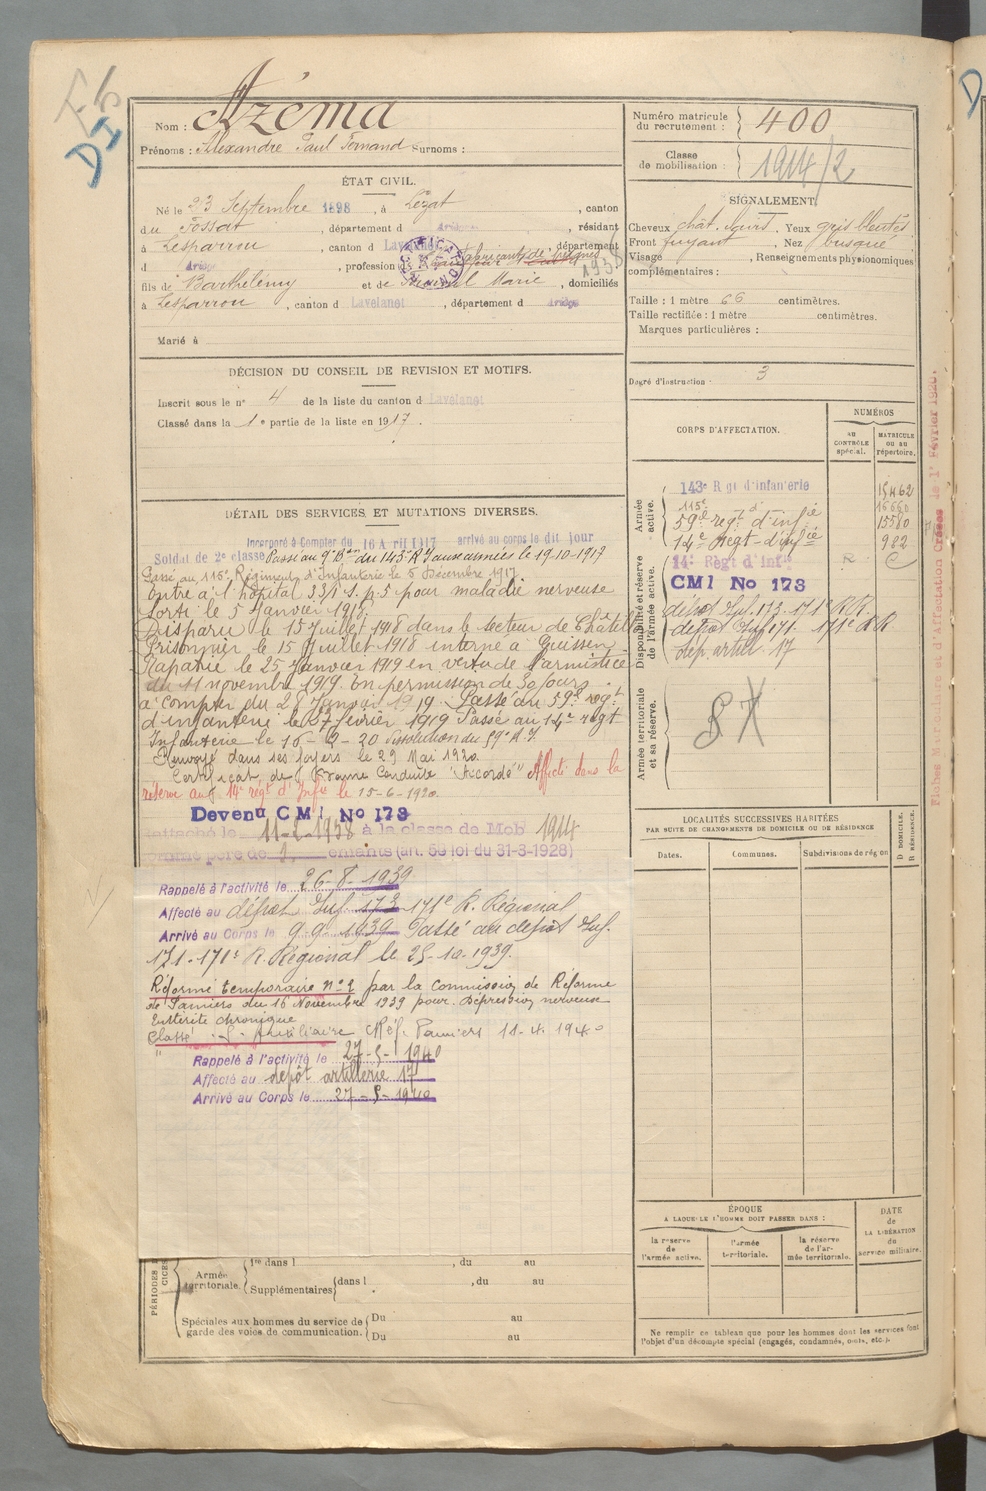 Azéma
Nom :
Prénoms : Alexandre Paul Fernand Surnoms :
ÉTAT CIVIL.
Né le 23 Septembre 1898, à Lézat, canton
du Fossat, département d Ariège, résidant
à Lesparrou, canton d Lavelanet, département
d Ariège, profession de fabricant de peignes
1938
fils de Barthélémy et de Marie, domiciliés
à Lesparrou, canton d Lavelanet, département d Ariège
Marié à
DÉCISION DU CONSEIL DE REVISION ET MOTIFS.
Inscrit sous le n° 4 de la liste du canton d Lavelanet
Classé dans la 1e partie de la liste en 1917.
DÉTAIL DES SERVICES ET MUTATIONS DIVERSES.
Incorporé à Compter du 16 Avril 1917 arrivé au corps le dit jour
Soldat de 2e classe Passé au 9e Bon du 143e R I aux armées le 19.10.1917
Passé au 115e Régiment d'Infanterie le 5 Décembre 1917.
Entré à l'hôpital 33/1 S. p. 5 pour maladie nerveuse
Sorti le 5 Janvier 1918.
Disparu le 15 Juillet 1918 dans le secteur de
Prisonnier le 15 Juillet 1918 interné à Giessen.
Rapatrié le 25 Janvier 1919 en vertu de l'armistice
du 11 novembre 1919. En permission de 30 jours
à compter du 28 Janvier 1919. Passé au 59e régt
d'infanterie le 27 février 1919 Passé au 14e régt
Infanterie le 16-2-20 dissolution du 59e R.I.
Renvoyé dans ses foyers le 29 Mai 1920.
Certificat de Bonne Conduite "Accordé" Affecté dans la
réserve au 14e régt d'Infie le 15-6-1920.
Devenu CMI No 173
Rattaché le 11-2-1938 à la classe de Mob 1914
comme père de 2 enfants (art. 58 loi du 31-3-1928)
Rappelé à l'activité le 26-8-1939
Affecté au dépôt Inf. 173 171e R. Régional
Arrivé au Corps le 9.9.1939 Passé au dépôt Inf.
171. 171e R. Régional le 25-10-1939.
Réformé temporaire n° 2 par la Commission de Réforme
de Pamiers du 16 Novembre 1939 pour. Dépression nerveuse
Entérite chronique
Classé S. Auxiliaire Réf. Pamiers 11-4-1940
Rappelé à l'activité le 27-5-1940
Affecté au dépôt artillerie 17
Arrivé au Corps le 27-5-1940
PÉRIODES
CICES
Armée territoriale.
1re dans l , du au
Supplémentaires dans l , du au
Spéciales aux hommes du service de garde des voies de communication.
Du au
Du au
Numéro matricule du recrutement : 400
Classe de mobilisation : 1914/2
SIGNALEMENT.
Cheveux chât. Yeux gris bleutés
Front fuyant, Nez busqué
Visage , Renseignements physionomiques
complémentaires :
Taille : 1 mètre 66 centimètres.
Taille rectifiée : 1 mètre centimètres.
Marques particulières :
Degré d'instruction : 3
CORPS D'AFFECTATION.
NUMÉROS
AU CONTRÔLE spécial.
MATRICULE ou au répertoire.
Armée active.
143e Rgt d'Infanterie 15462
115e d°
59e régt d'infie 15580
14e Régt d'infie 922
Disponibilité et réserve de l'armée active.
14e Régt d'infie R C
CMI No 173
dépôt Inf. 173. 171e R.R.
depot Inf 171. 171e R.R.
dép. artie. 17
Armée territoriale et sa réserve.
SX
LOCALITÉS SUCCESSIVES HABITÉES
PAR SUITE DE CHANGEMENTS DE DOMICILE OU DE RÉSIDENCE
Dates.
Communes.
Subdivisions de région
D DOMICILE.
R RÉSIDENCE.
ÉPOQUE
A LAQUELLE L'HOMME DOIT PASSER DANS :
la réserve de l'armée active.
l'armée territoriale.
la réserve de l'armée territoriale.
DATE de LA LIBÉRATION du service militaire.
Ne remplir ce tableau que pour les hommes dont les services font
l'objet d'un décompte spécial (engagés, condamnés, omis, etc.).
Fiches Matricule et d'Affectation Créées le 1er Février 1926.